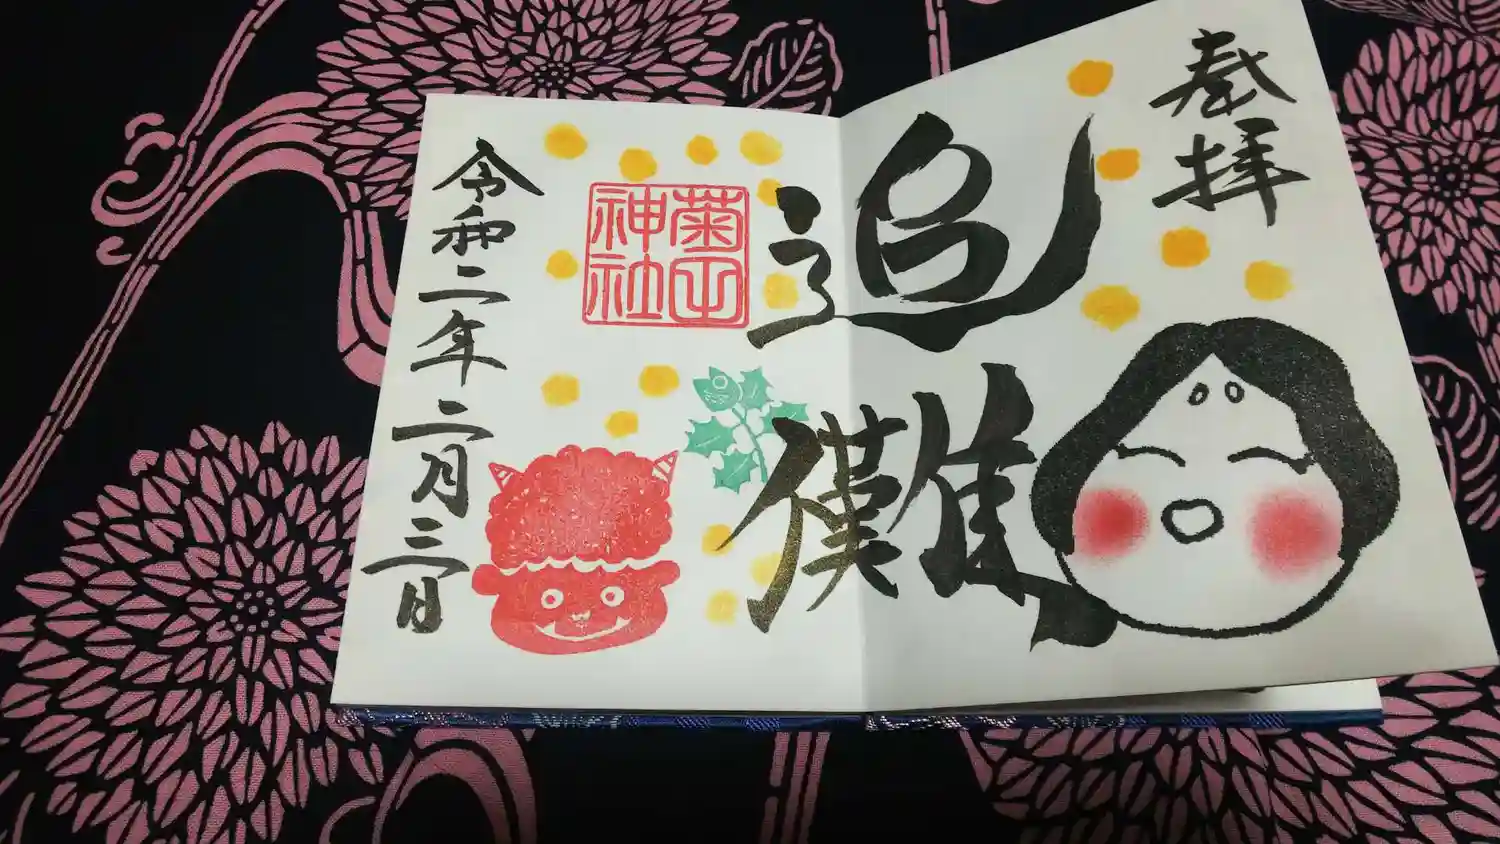 奉拝
追儺
菊田神社
令和二年二月三日